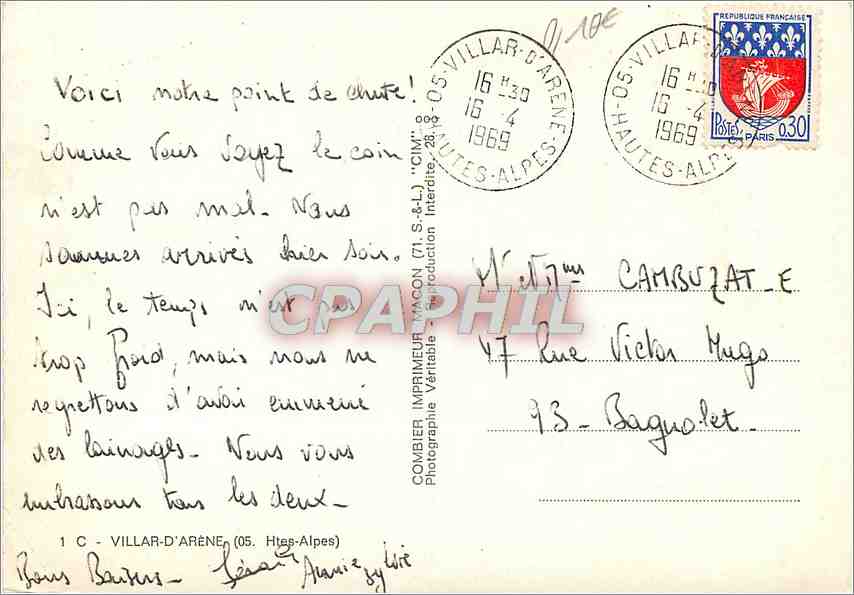 Voici notre point de chute!
Comme vous voyez le coin
n'est pas mal. Nous
sommes arrivés hier soir.
Ici, le temps n'est pas
trop froid, mais nous ne
regrettons d'avoir emmené
des lainages. Nous vous
embrassons tous les deux.
1 C - VILLAR-D'ARÈNE (05. Htes-Alpes)
Bons Baisers Annie
COMBIER IMPRIMEUR MACON (71. S.-&-L.) "CIM"
Photographie Véritable - Reproduction Interdite
CPAPHIL
10€
05-VILLAR-D'ARÈNE
16 H 30
16 - 4
1969
HAUTES-ALPES
05-VILLAR-D'
16 H 30
16 - 4
1969
HAUTES-ALPES
REPUBLIQUE FRANÇAISE
POSTES 0,30
PARIS
CAMBUZAT - E
47 Rue Victor Hugo
93 - Bagnolet.